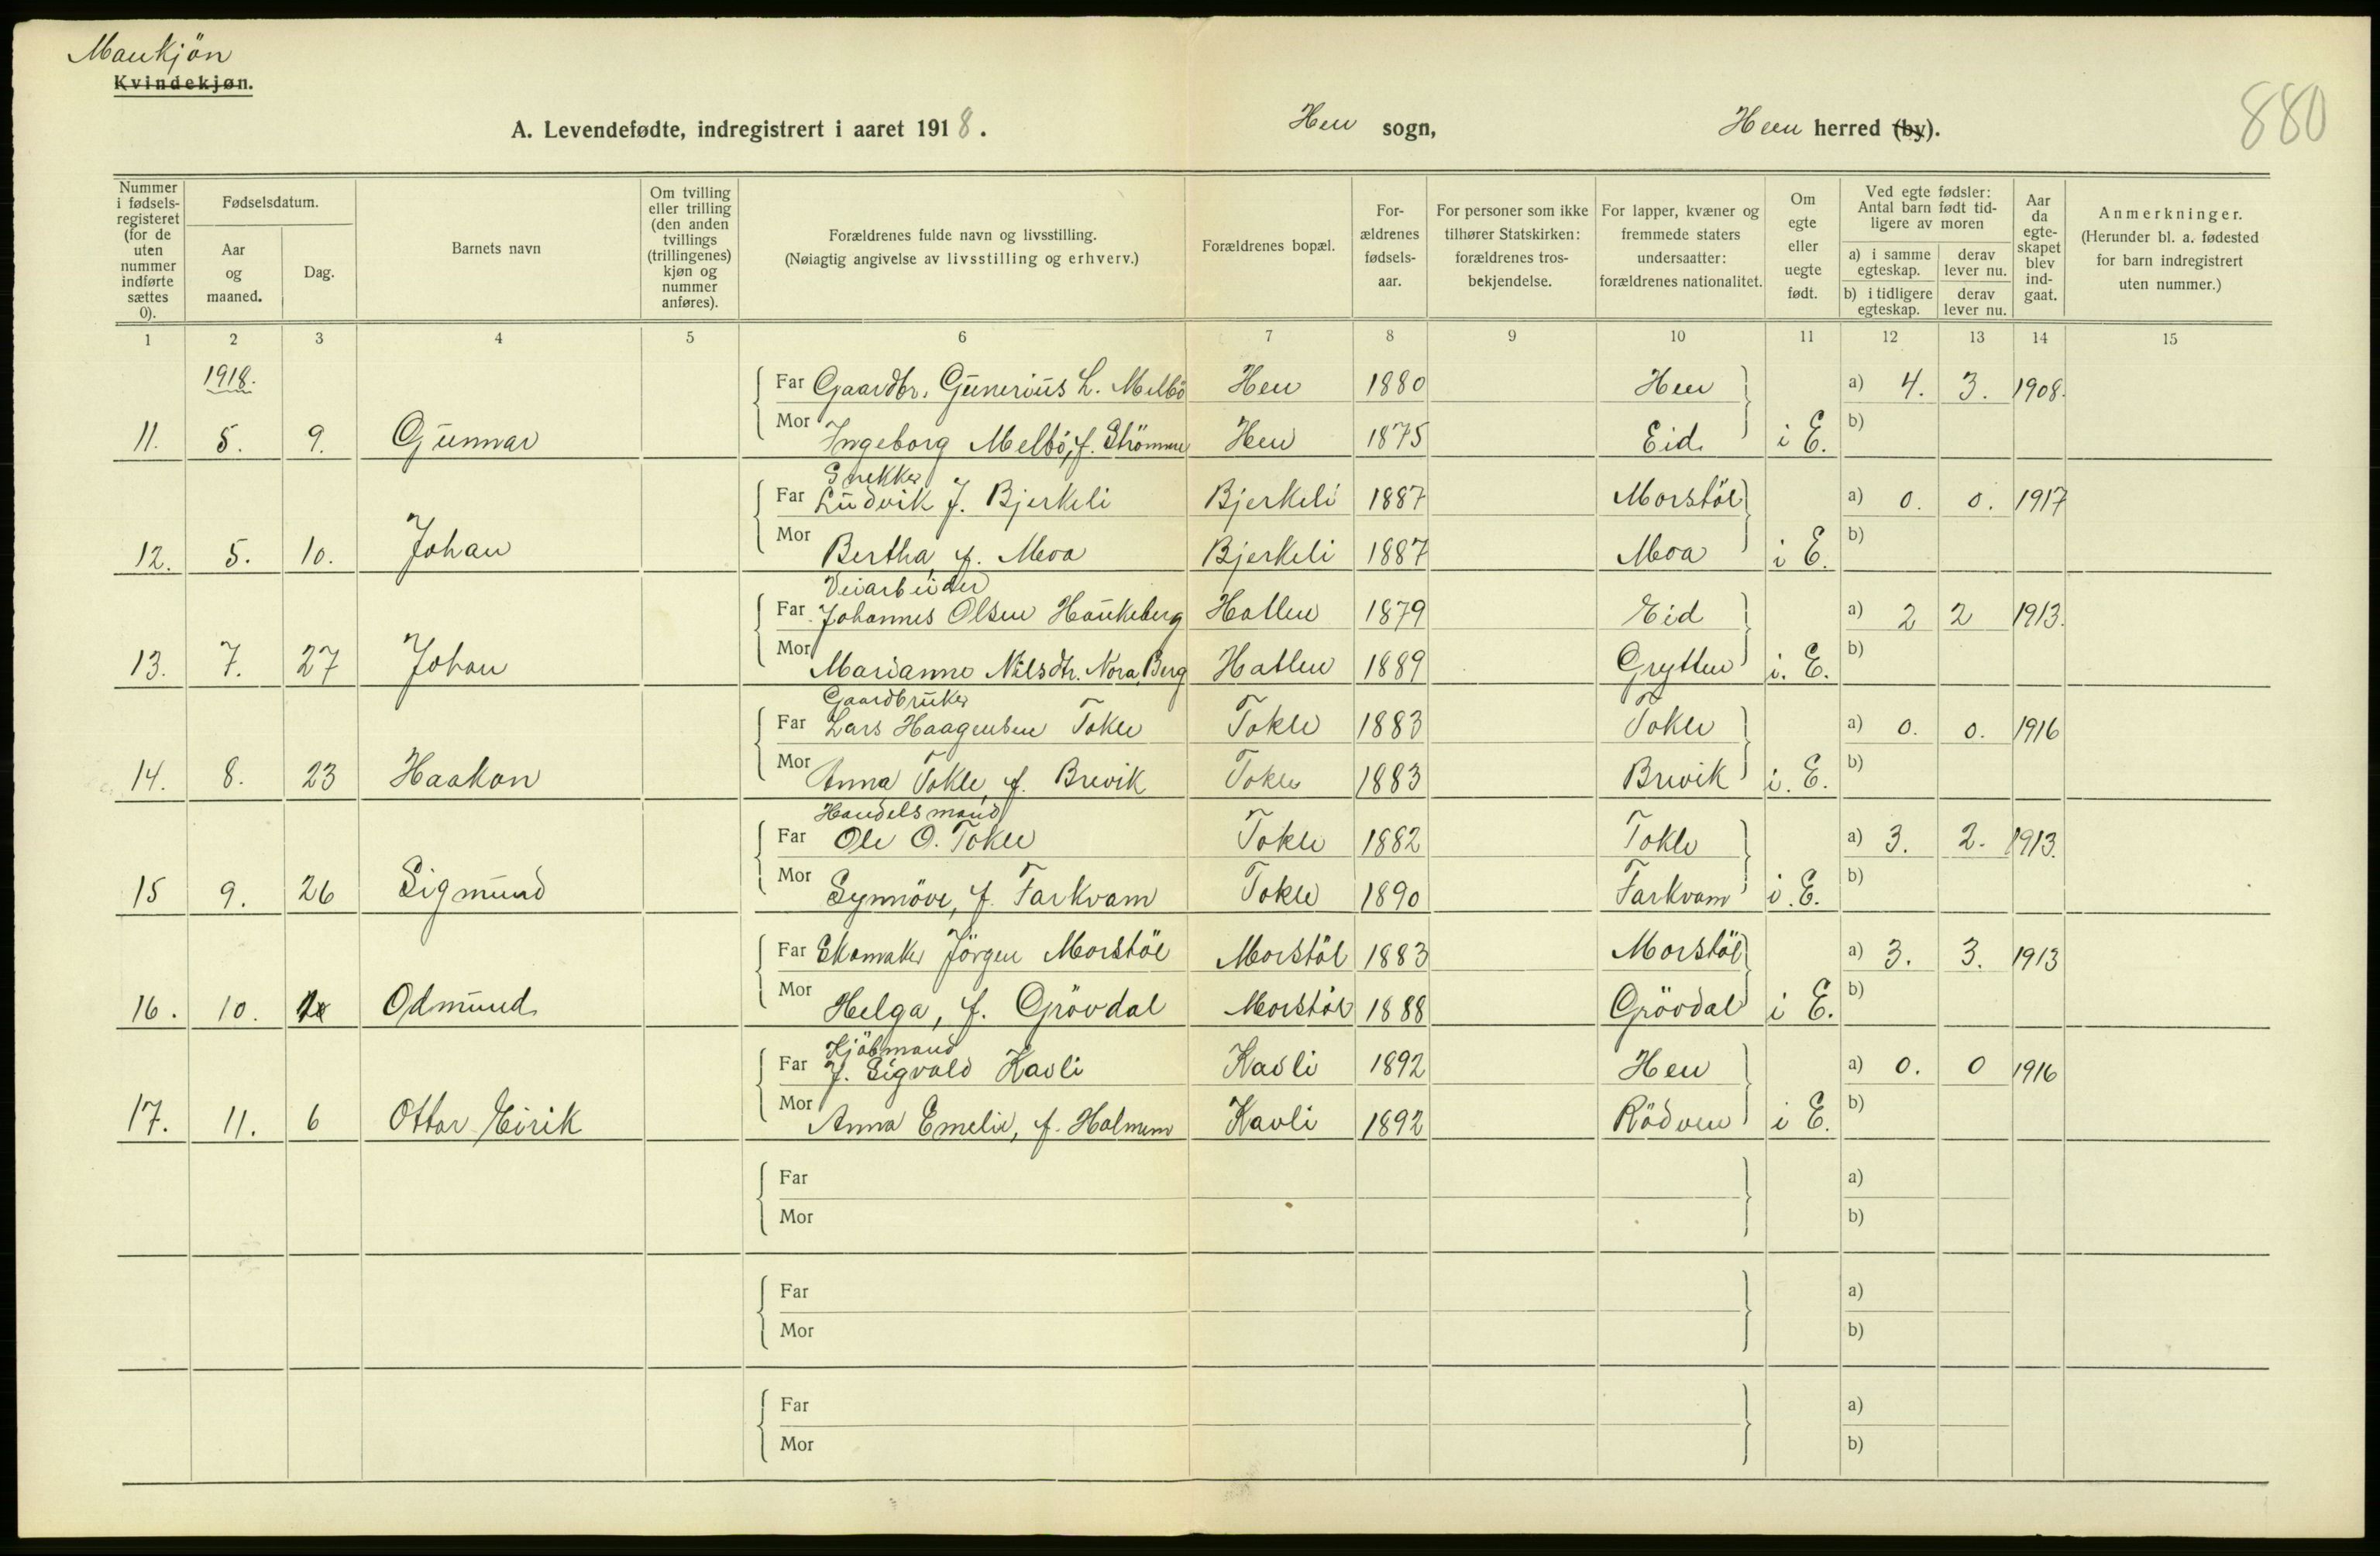 Mankjön
Kvindekjøn.
880
A. Levendefødte, indregistrert i aaret 1918. Hen sogn, Hen herred (by).
Nummer i fødsels-registeret (for de uten nummer indførte sættes 0).
Fødselsdatum.
Aar og maaned.
Dag.
Barnets navn
Om tvilling eller trilling (den anden tvillings (trillingenes) kjøn og nummer anføres).
Forældrenes fulde navn og livsstilling.
(Nøiagtig angivelse av livsstilling og erhverv.)
Forældrenes bopæl.
For-ældrenes fødsels-aar.
For personer som ikke tilhører Statskirken: forældrenes tros-bekjendelse.
For lapper, kvæner og fremmede staters undersaatter: forældrenes nationalitet.
Om egte eller uegte født.
Ved egte fødsler: Antal barn født tid-ligere av moren
a) i samme egteskap. derav lever nu.
b) i tidligere egteskap. derav lever nu.
Aar da egte-skapet blev ind-gaat.
Anmerkninger.
(Herunder bl. a. fødested for barn indregistrert uten nummer.)
1 2 3 4 5 6 7 8 9 10 11 12 13 14 15
1918.
Far Gaardbr. Gunerius L. Melbö Hen 1880 Hen a) 4. 3. 1908.
11. 5. 9. Gunnar Mor Ingeborg Melbö, f. Strömme Hen 1875 Eid i E. b)
Snekker
Far Ludvik J. Bjerkeli Bjerkeli 1887 Morstöl a) 0. 0. 1917
12. 5. 10. Johan Mor Bertha, f. Moa Bjerkeli 1887 Moa i E. b)
Veiarbeider
Far Johannes Olsen Haukeberg Hatlen 1879 Eid a) 2 2 1913.
13. 7. 27 Johan Mor Marianne Nilsdtr. Nora Berg Hatlen 1889 Grytten i. E. b)
Gaardbruker
Far Lars Haagensen Tokle Tokle 1883 Tokle a) 0. 0. 1916
14. 8. 23 Haakon Mor Anna Tokle, f. Brevik Tokle 1883 Brevik i. E. b)
Handelsmand
Far Ole O. Tokle Tokle 1882 Tokle a) 3. 2. 1913.
15 9. 26 Sigmund Mor Synnöve, f. Farkvam Tokle 1890 Farkvam i. E. b)
Far Skomaker Jörgen Morstöl Morstöl 1883 Morstöl a) 3. 3. 1913
16. 10. Odmund Mor Helga, f. Grövdal Morstöl 1888 Grövdal i E. b)
Kjöbmand
Far J. Sigvald Kavli Kavli 1892 Hen a) 0. 0 1916
17. 11. 6 Ottar Eirik Mor Anna Emelie, f. Holmem Kavli 1892 Rödven i E. b)
Far a)
Mor b)
Far a)
Mor b)
Far a)
Mor b)